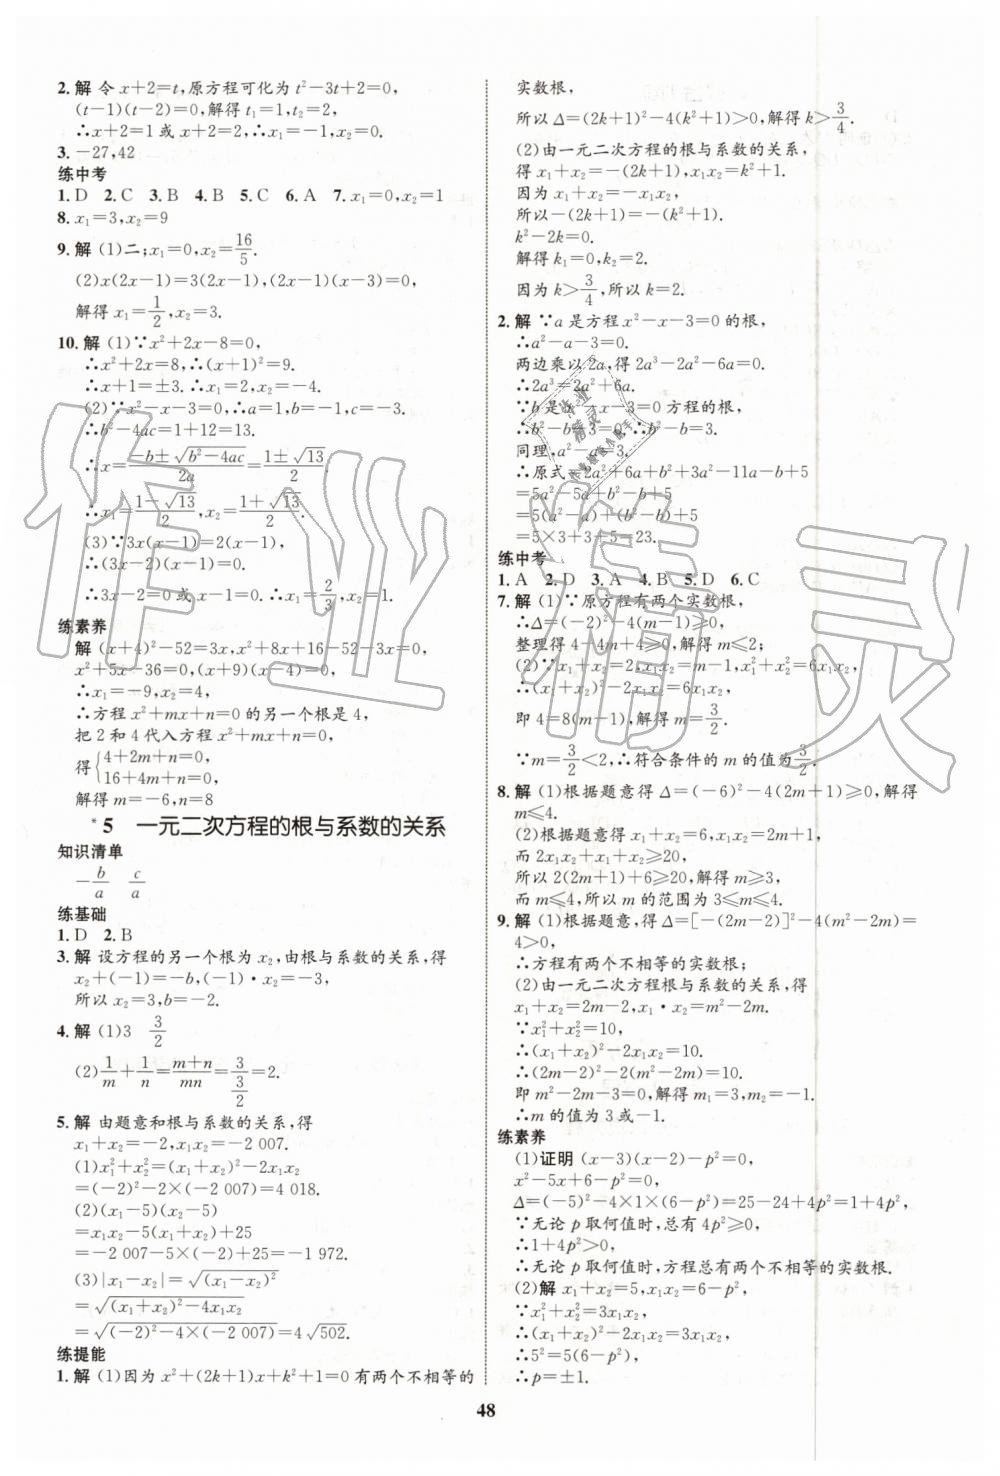 2. 解 令 x+2=t,原方程可化为 t²-3t+2=0,
(t-1)(t-2)=0,解得 t₁=1,t₂=2,
∴x+2=1 或 x+2=2,∴x₁=-1,x₂=0.
3. -27,42
练中考
1. D 2. C 3. B 4. B 5. C 6. A 7. x₁=0,x₂=1
8. x₁=3,x₂=9
9. 解 (1)二;x₁=0,x₂=16/5.
(2)x(2x-1)=3(2x-1),(2x-1)(x-3)=0,
解得 x₁=1/2,x₂=3.
10. 解 (1)∵x²+2x-8=0,
∴x²+2x=8,∴(x+1)²=9.
∴x+1=±3. ∴x₁=2,x₂=-4.
(2)∵x²-x-3=0,∴a=1,b=-1,c=-3.
∴b²-4ac=1+12=13.
∴x=(-b±√(b²-4ac))/2a=(1±√13)/2.
∴x₁=(1-√13)/2,x₂=(1+√13)/2.
(3)∵3x(x-1)=2(x-1),
∴(3x-2)(x-1)=0.
∴3x-2=0 或 x-1=0.∴x₁=2/3,x₂=1.
练素养
解 (x+4)²-52=3x,x²+8x+16-52-3x=0,
x²+5x-36=0,(x+9)(x-4)=0,
∴x₁=-9,x₂=4,
∴方程 x²+mx+n=0 的另一个根是 4,
把 2 和 4 代入方程 x²+mx+n=0,
得{4+2m+n=0,
16+4m+n=0,
解得 m=-6,n=8
*5 一元二次方程的根与系数的关系
知识清单
-b/a c/a
练基础
1. D 2. B
3. 解 设方程的另一个根为 x₂,由根与系数的关系,得
x₂+(-1)=-b,(-1)·x₂=-3,
所以 x₂=3,b=-2.
4. 解 (1)3 3/2
(2)1/m+1/n=(m+n)/mn=3/(3/2)=2.
5. 解 由题意和根与系数的关系,得
x₁+x₂=-2,x₁x₂=-2 007.
(1)x₁²+x₂²=(x₁+x₂)²-2x₁x₂
=(-2)²-2×(-2 007)=4 018.
(2)(x₁-5)(x₂-5)
=x₁x₂-5(x₁+x₂)+25
=-2 007-5×(-2)+25=-1 972.
(3)|x₁-x₂|=√(x₁-x₂)²
=√((x₁+x₂)²-4x₁x₂)
=√((-2)²-4×(-2 007))=4√502.
练提能
1. 解 (1)因为 x²+(2k+1)x+k²+1=0 有两个不相等的
实数根,
所以 Δ=(2k+1)²-4(k²+1)>0,解得 k>3/4.
(2)由一元二次方程的根与系数的关系,
得 x₁+x₂=-(2k+1),x₁x₂=k²+1.
因为 x₁+x₂=-x₁x₂,
所以-(2k+1)=-(k²+1).
k²-2k=0.
解得 k₁=0,k₂=2.
因为 k>3/4,所以 k=2.
2. 解 ∵a 是方程 x²-x-3=0 的根,
∴a²-a-3=0.
两边乘以 2a,得 2a³-2a²-6a=0.
∴2a³=2a²+6a.
∵b 是 x²-x-3=0 方程的根,
∴b²-b-3=0.∴b²-b=3.
同理,a²-a=3.
∴原式=2a²+6a+b²+3a²-11a-b+5
=5a²-5a+b²-b+5
=5(a²-a)+(b²-b)+5
=5×3+3+5=23.
练中考
1. A 2. D 3. A 4. B 5. D 6. C
7. 解 (1)∵原方程有两个实数根,
∴Δ=(-2)²-4(m-1)≥0,
整理得 4-4m+4≥0,解得 m≤2;
(2)∵x₁+x₂=2,x₁x₂=m-1,x₁²+x₂²=6x₁x₂,
∴(x₁+x₂)²-2x₁x₂=6x₁x₂,
即 4=8(m-1),解得 m=3/2.
∵m=3/2<2,∴符合条件的 m 的值为3/2.
8. 解 (1)根据题意得 Δ=(-6)²-4(2m+1)≥0,解得
m≤4.
(2)根据题意得 x₁+x₂=6,x₁x₂=2m+1,
而 2x₁x₂+x₁+x₂≥20,
所以 2(2m+1)+6≥20,解得 m≥3,
而 m≤4,所以 m 的范围为 3≤m≤4.
9. 解 (1)根据题意,得 Δ=[-(2m-2)]²-4(m²-2m)=
4>0,
∴方程有两个不相等的实数根;
(2)由一元二次方程根与系数的关系,得
x₁+x₂=2m-2,x₁·x₂=m²-2m.
∵x₁²+x₂²=10,
∴(x₁+x₂)²-2x₁x₂=10.
∴(2m-2)²-2(m²-2m)=10.
即 m²-2m-3=0,解得 m₁=3,m₂=-1.
∴m 的值为 3 或-1.
练素养
(1)证明 (x-3)(x-2)-p²=0,
x²-5x+6-p²=0,
Δ=(-5)²-4×1×(6-p²)=25-24+4p²=1+4p²,
∵无论 p 取何值时,总有 4p²≥0,
∴1+4p²>0,
∴无论 p 取何值时,方程总有两个不相等的实数根.
(2)解 x₁+x₂=5,x₁x₂=6-p²,
∵x₁²+x₂²=3x₁x₂,
∴(x₁+x₂)²-2x₁x₂=3x₁x₂,
∴5²=5(6-p²),
∴p=±1.
48
作业精灵